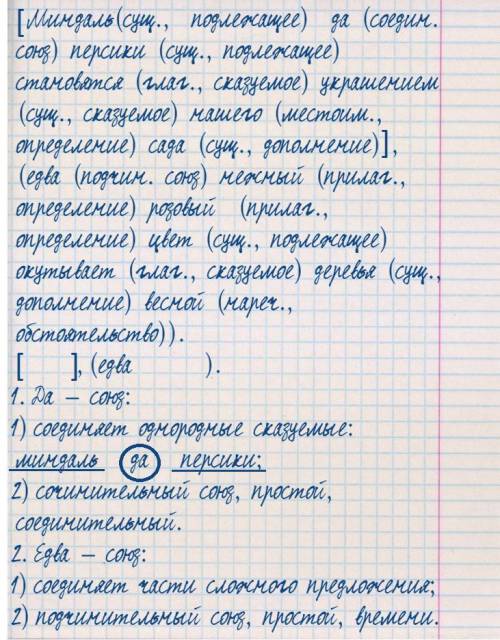 [Миндаль(сущ., подлежащее) да (соедин.
союз) персики (сущ., подлежащее)
становятся (глаг., сказуемое) украшением
(сущ., сказуемое) нашего (местоим.,
определение) сада (сущ., дополнение)],
(едва (подчин. союз) нежный (прилаг.,
определение) розовый (прилаг.,
определение) цвет (сущ., подлежащее)
окутывает (глаг., сказуемое) деревья (сущ.,
дополнение) весной (нареч.,
обстоятельство)).
[ ], (едва ).
1. Да – союз:
1) соединяет однородные сказуемые:
миндаль да персики;
2) сочинительный союз, простой,
соединительный.
2. Едва – союз:
1) соединяет части сложного предложения;
2) подчинительный союз, простой, времени.